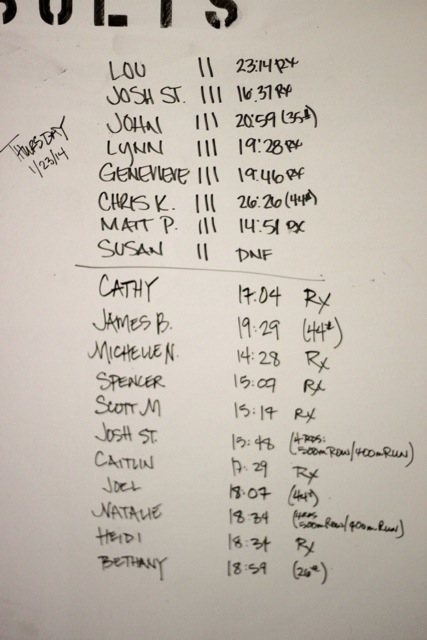 SULTS
THURSDAY
1/23/14
LOU II 23:14 RX
JOSH ST. III 16:37 RX
JOHN III 20:59 (35#)
LYNN III 19:28 RX
GENEVIEVE III 19:46 RX
CHRIS K. III 26:26 (44#)
MATT P. III 14:51 RX
SUSAN II DNF
CATHY 17:04 Rx
JAMES B. 19:29 (44#)
MICHELLE N. 14:28 Rx
SPENCER 15:09 Rx
SCOTT M 15:17 Rx
JOSH ST. 15:48 (4 RDS: 500m ROW/400m RUN)
CAITLIN 17:29 Rx
JOEL 18:07 (44#)
NATALIE 18:34 (4 RDS 500m ROW/400m RUN)
HEIDI 18:34 Rx
BETHANY 18:59 (26#)